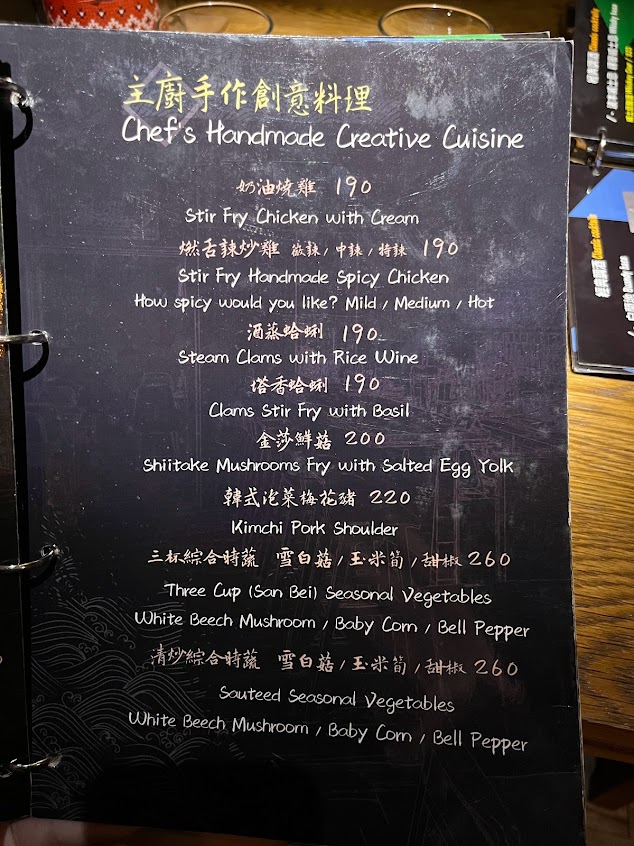 主廚手作創意料理
Chef's Handmade Creative Cuisine
奶油燒雞 190
Stir Fry Chicken with Cream
燃舌辣炒雞 微辣/中辣/特辣 190
Stir Fry Handmade Spicy Chicken
How spicy would you like? Mild / Medium / Hot
酒蒸蛤蜊 190
Steam Clams with Rice Wine
塔香蛤蜊 190
Clams Stir Fry with Basil
金莎鮮菇 200
Shiitake Mushrooms Fry with Salted Egg Yolk
韓式泡菜梅花豬 220
Kimchi Pork Shoulder
三杯綜合時蔬 雪白菇/玉米筍/甜椒 260
Three Cup (San Bei) Seasonal Vegetables
White Beech Mushroom / Baby Corn / Bell Pepper
清炒綜合時蔬 雪白菇/玉米筍/甜椒 260
Sauteed Seasonal Vegetables
White Beech Mushroom / Baby Corn / Bell Pepper
經典調酒 Classic cocktails